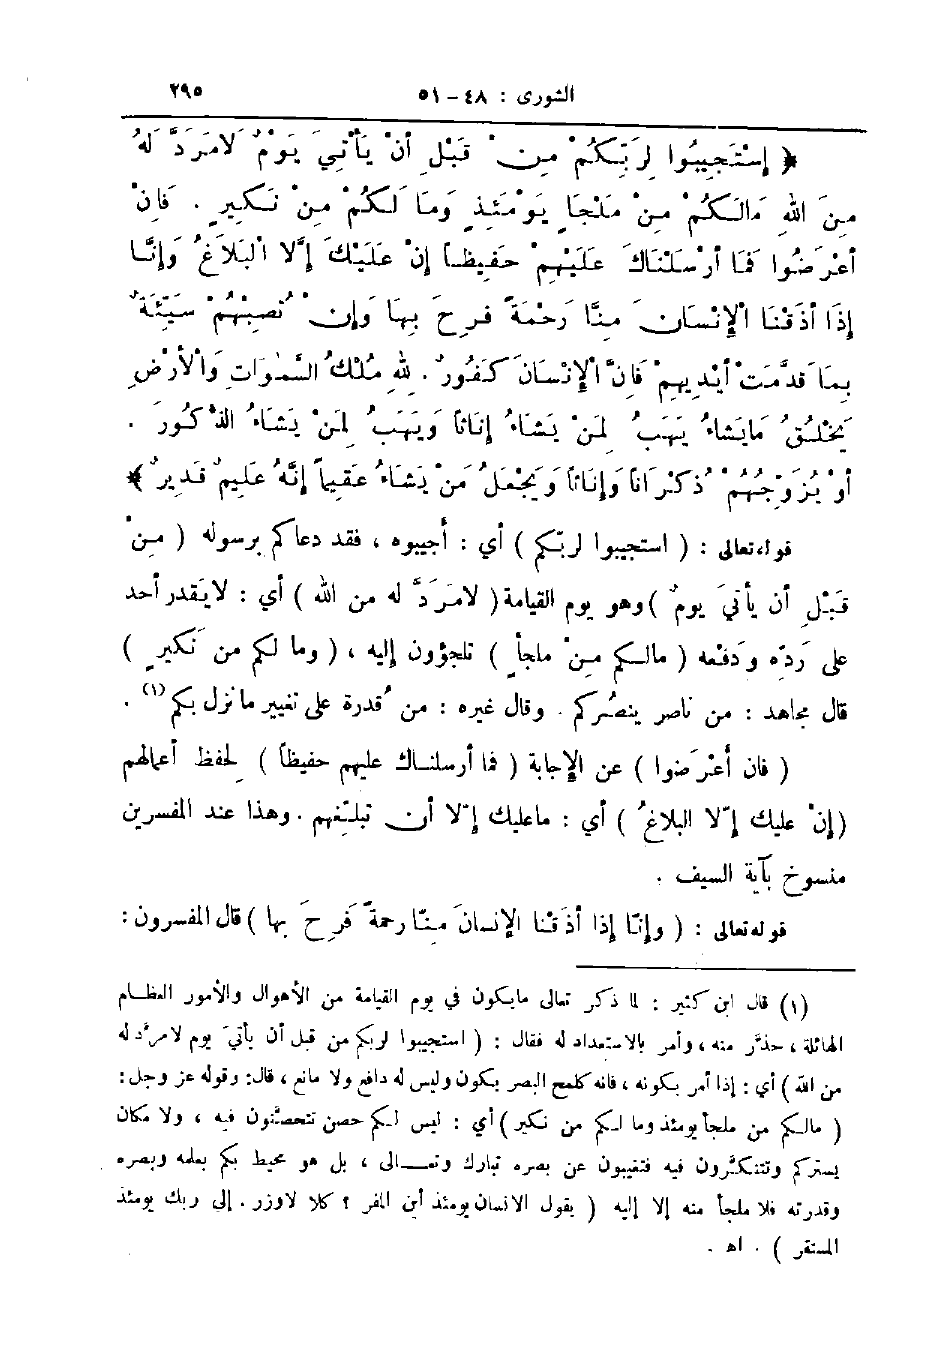 الشورى : ٤٨ - ٥١ ٢٩٥
﴿ إِسْتَجِيبُوا لِرَبِّكُمْ مِنْ قَبْلِ أَنْ يَأْتِيَ يَوْمٌ لَا مَرَدَّ لَهُ
مِنَ اللهِ مَالَكُمْ مِنْ مَلْجَإٍ يَوْمَئِذٍ وَمَا لَكُمْ مِنْ نَكِيرٍ . فَإِنْ
أَعْرَضُوا فَمَا أَرْسَلْنَاكَ عَلَيْهِمْ حَفِيظاً إِنْ عَلَيْكَ إِلَّا الْبَلَاغُ وَإِنَّا
إِذَا أَذَقْنَا الْإِنْسَانَ مِنَّا رَحْمَةً فَرِحَ بِهَا وَإِنْ تُصِبْهُمْ سَيِّئَةٌ
بِمَا قَدَّمَتْ أَيْدِيهِمْ فَإِنَّ الْإِنْسَانَ كَفُورٌ . لِلهِ مُلْكُ السَّمٰوَاتِ وَالْأَرْضِ
يَخْلُقُ مَا يَشَاءُ يَهَبُ لِمَنْ يَشَاءُ إِنَاثاً وَيَهَبُ لِمَنْ يَشَاءُ الذُّكُورَ .
أَوْ يُزَوِّجُهُمْ ذُكْرَاناً وَإِنَاثاً وَيَجْعَلُ مَنْ يَشَاءُ عَقِيماً إِنَّهُ عَلِيمٌ قَدِيرٌ ﴾
قوله تعالى : ( استجيبوا لربِّكم ) أي : أجيبوه ، فقد دعاكم برسوله ( مِنْ
قَبْلِ أن يأتيَ يومٌ ) وهو يوم القيامة ( لا مَرَدَّ له من الله ) أي : لا يَقدر أحد
على رَدِّه ودَفْعه ( مالكم مِنْ ملجأٍ ) تلجؤون إليه ، ( وما لكم من نَكيرٍ )
قال مجاهد : من ناصر ينصُركم . وقال غيره : من قُدرة على تغيير ما نزل بكم (١) .
( فان أَعْرَضوا ) عن الإجابة ( فما أرسلناك عليهم حفيظاً ) لحفظ أعمالهم
( إنْ عليك إلّا البلاغُ ) أي : ما عليك إلّا أن تبلِّغهم . وهذا عند المفسرين
منسوخ بآية السيف .
قوله تعالى : ( وإنّا إذا أذَقْنا الإنسانَ مِنّا رحمةً فَرِحَ بها ) قال المفسرون :
(١) قال ابن كثير : لما ذكر تعالى مايكون في يوم القيامة من الأهوال والأمور العظام
الهائلة ، حذَّر منه ، وأمر بالاستعداد له فقال : ( استجيبوا لربكم من قبل أن يأتيَ يوم لا مردَّ له
من الله ) أي : إذا أمر بكونه ، فانه كلمح البصر يكون وليس له دافع ولا مانع ، قال: وقوله عز وجل :
( مالكم من ملجأ يومئذ وما لكم من نكير ) أي : ليس لكم حصن تتحصَّنون فيه ، ولا مكان
يستركم وتتنكَّرون فيه فتغيبون عن بصره تبارك وتعالى ، بل هو محيط بكم بعلمه وبصره
وقدرته فلا ملجأ منه إلا إليه ( يقول الانسان يومئذ أين المفر ؟ كلا لاوزر . إلى ربك يومئذ
المستقر ) . اه .